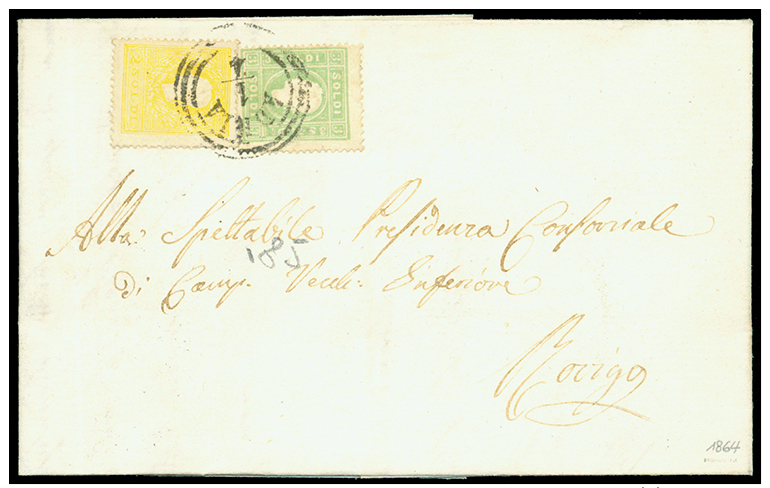 2 SOLDI
3 SOLDI
ADRIA
1/4
Alla Spettabile Presidenza Consorziale
di Camp. Vecch. Inferiore
185
Rovigo
1864